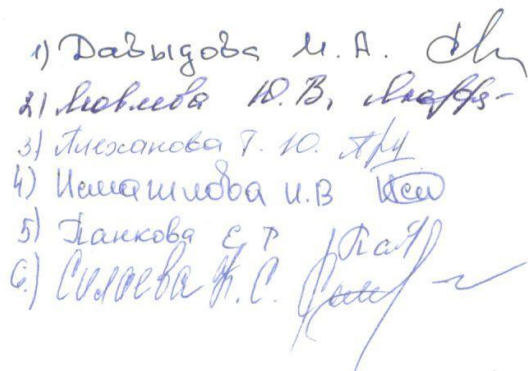 1) Давыдова М. А.
2) Ю. В.
3) Плеханова Т. Ю.
4) Исмаилова И. В
5) Панкова Е. Р
6.) Силаева К. С.